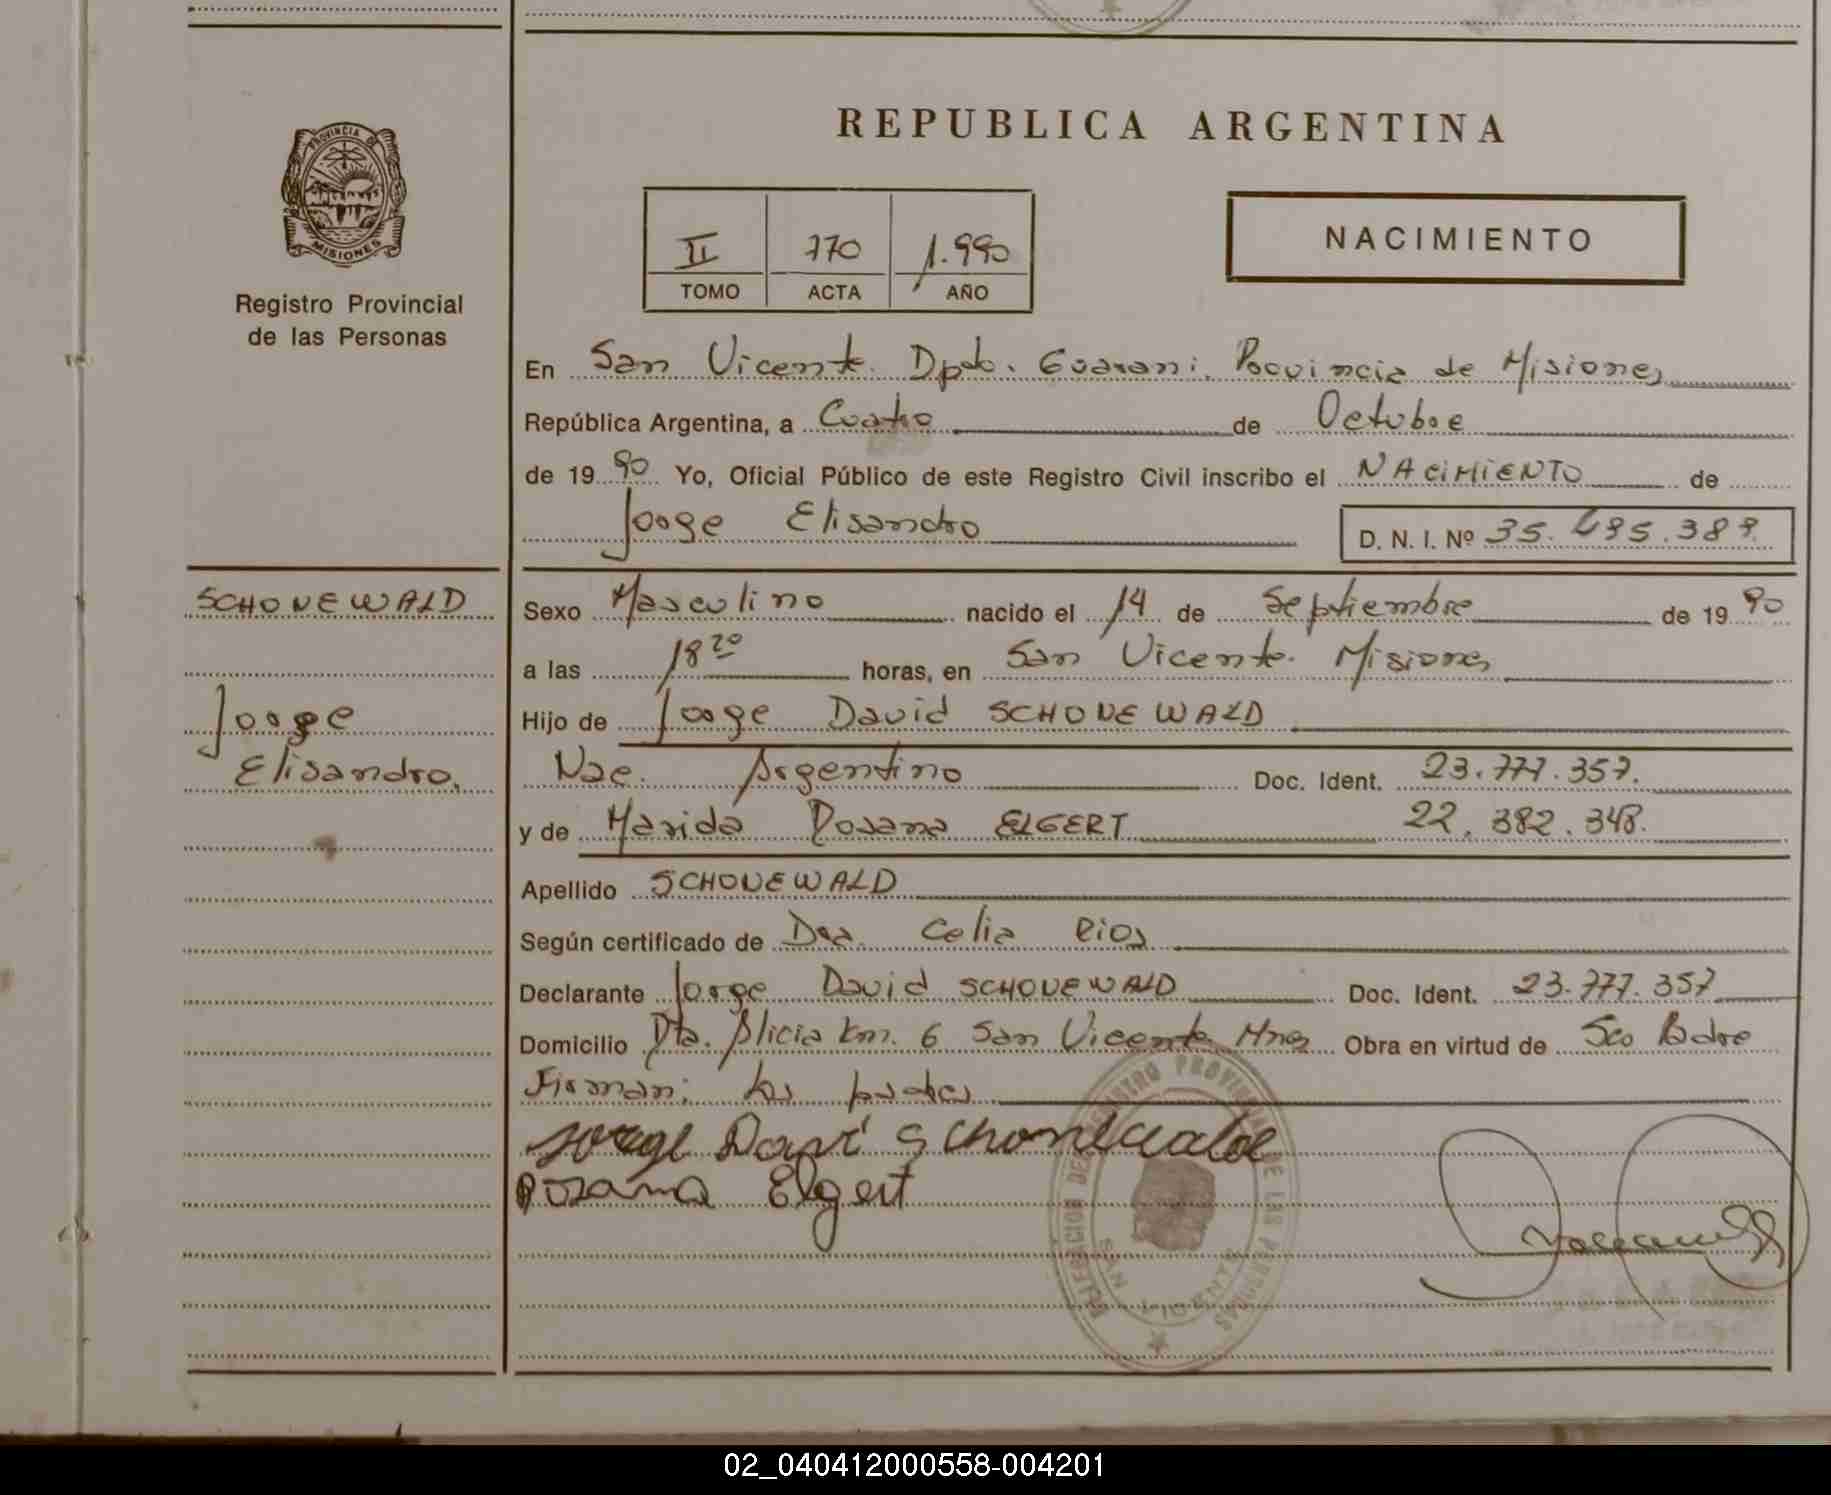 REPUBLICA ARGENTINA
PROVINCIA DE
MISIONES
Registro Provincial
de las Personas
II 770 1.990
TOMO ACTA AÑO
NACIMIENTO
En San Vicente. Dpto. Guarani. Provincia de Misiones
República Argentina, a Cuatro de Octubre
de 19 90 Yo, Oficial Público de este Registro Civil inscribo el NACIMIENTO de
Jorge Elisandro
D. N. I. Nº
SCHONEWALD
Jorge
Elisandro.
Sexo Masculino nacido el 14 de Septiembre de 19 90
a las 18 20 horas, en San Vicente. Misiones
Hijo de Jorge David SCHONEWALD
Nac. Argentino Doc. Ident. 23.777.357.
y de Marida Rosana ELGERT 22.382.348.
Apellido SCHONEWALD
Según certificado de Dra. Celia Rios
Declarante Jorge David SCHONEWALD Doc. Ident. 23.777.357
Domicilio Pto. Alicia Km. 6 San Vicente Mnes Obra en virtud de Seo Padre
Firman: los padres
Jorge Davi Schonewald
Rosana Elgert
DELEGACION DEL REGISTRO PROVINCIAL DE LAS PERSONAS
SAN VICENTE
02_040412000558-004201